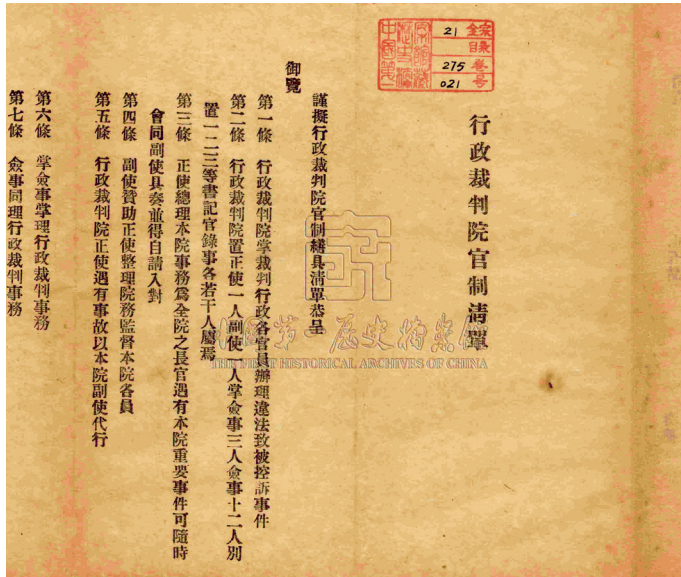 行政裁判院官制清單
全宗 21
目录
卷号 275
021
中国第一
历史档
案馆藏
謹擬行政裁判院官制繕具清單恭呈
御覽
第一條　行政裁判院掌裁判行政各官員辦理違法致被控訴事件
第二條　行政裁判院置正使一人副使一人掌僉事三人僉事十二人別
置一二三等書記官錄事各若干人屬焉
第三條　正使總理本院事務爲全院之長官遇有本院重要事件可隨時
會同副使具奏並得自請入對
第四條　副使贊助正使整理院務監督本院各員
第五條　行政裁判院正使遇有事故以本院副使代行
第六條　掌僉事掌理行政裁判事務
第七條　僉事同理行政裁判事務
中國第一歷史檔案館
THE FIRST HISTORICAL ARCHIVES OF CHINA